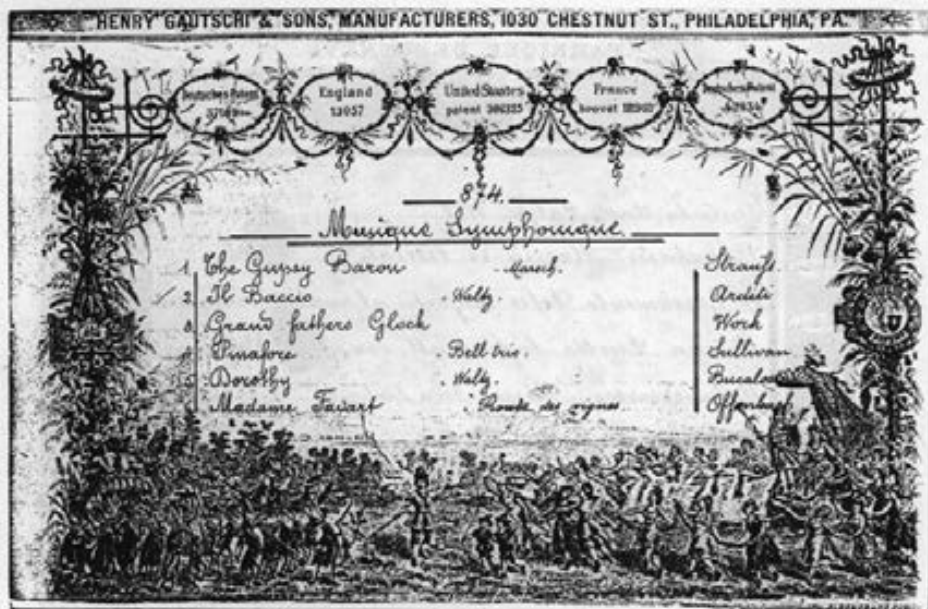 HENRY GAUTSCHI & SONS, MANUFACTURERS, 1030 CHESTNUT ST., PHILADELPHIA, PA.
Deutsches Patent
England
13057
United States
patent
France
brevet
Deutsches Patent
874.
Musique Symphonique.
1 The Gypsy Baron March. Strauß.
2. Il Baccio Waltz. Arditi
3 Grand fathers Glock Work
4 Pinafore Bell trio. Sullivan
5 Dorothy Waltz.
6 Madame Favart Ronde des vignes